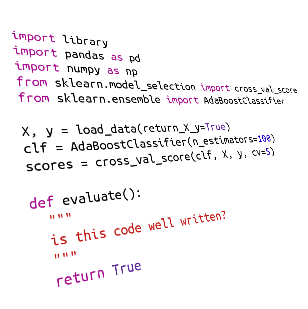 import library
import pandas as pd
import numpy as np
from sklearn.model_selection import cross_val_score
from sklearn.ensemble import AdaBoostClassifier
X, y = load_data(return_X_y=True)
clf = AdaBoostClassifier(n_estimators=100)
scores = cross_val_score(clf, X, y, cv=5)
def evaluate():
"""
is this code well written?
"""
return True